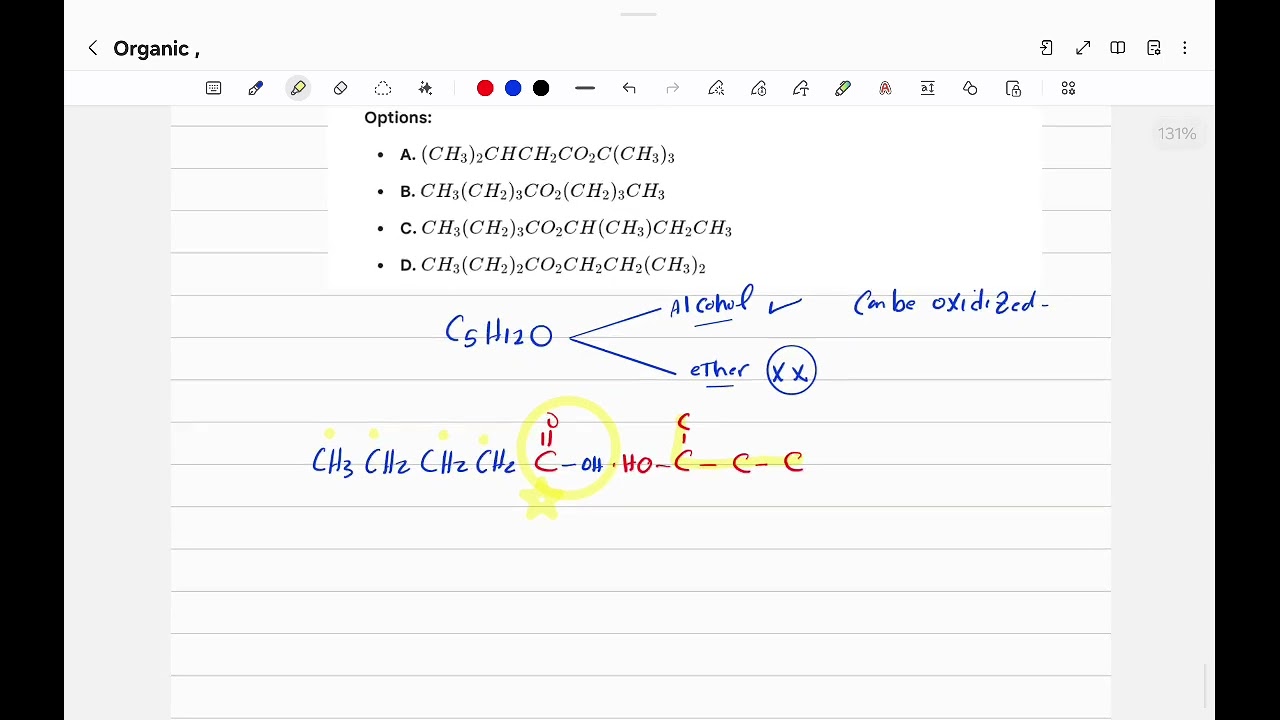 Organic ,
131%
Options:
• A. (CH₃)₂CHCH₂CO₂C(CH₃)₃
• B. CH₃(CH₂)₃CO₂(CH₂)₃CH₃
• C. CH₃(CH₂)₃CO₂CH(CH₃)CH₂CH₃
• D. CH₃(CH₂)₂CO₂CH₂CH₂(CH₃)₂
Alcohol ✓ Can be oxidized-
C5H12O
ether XX
O C
CH3 CH2 CH2 CH2 C-OH · HO-C-C-C